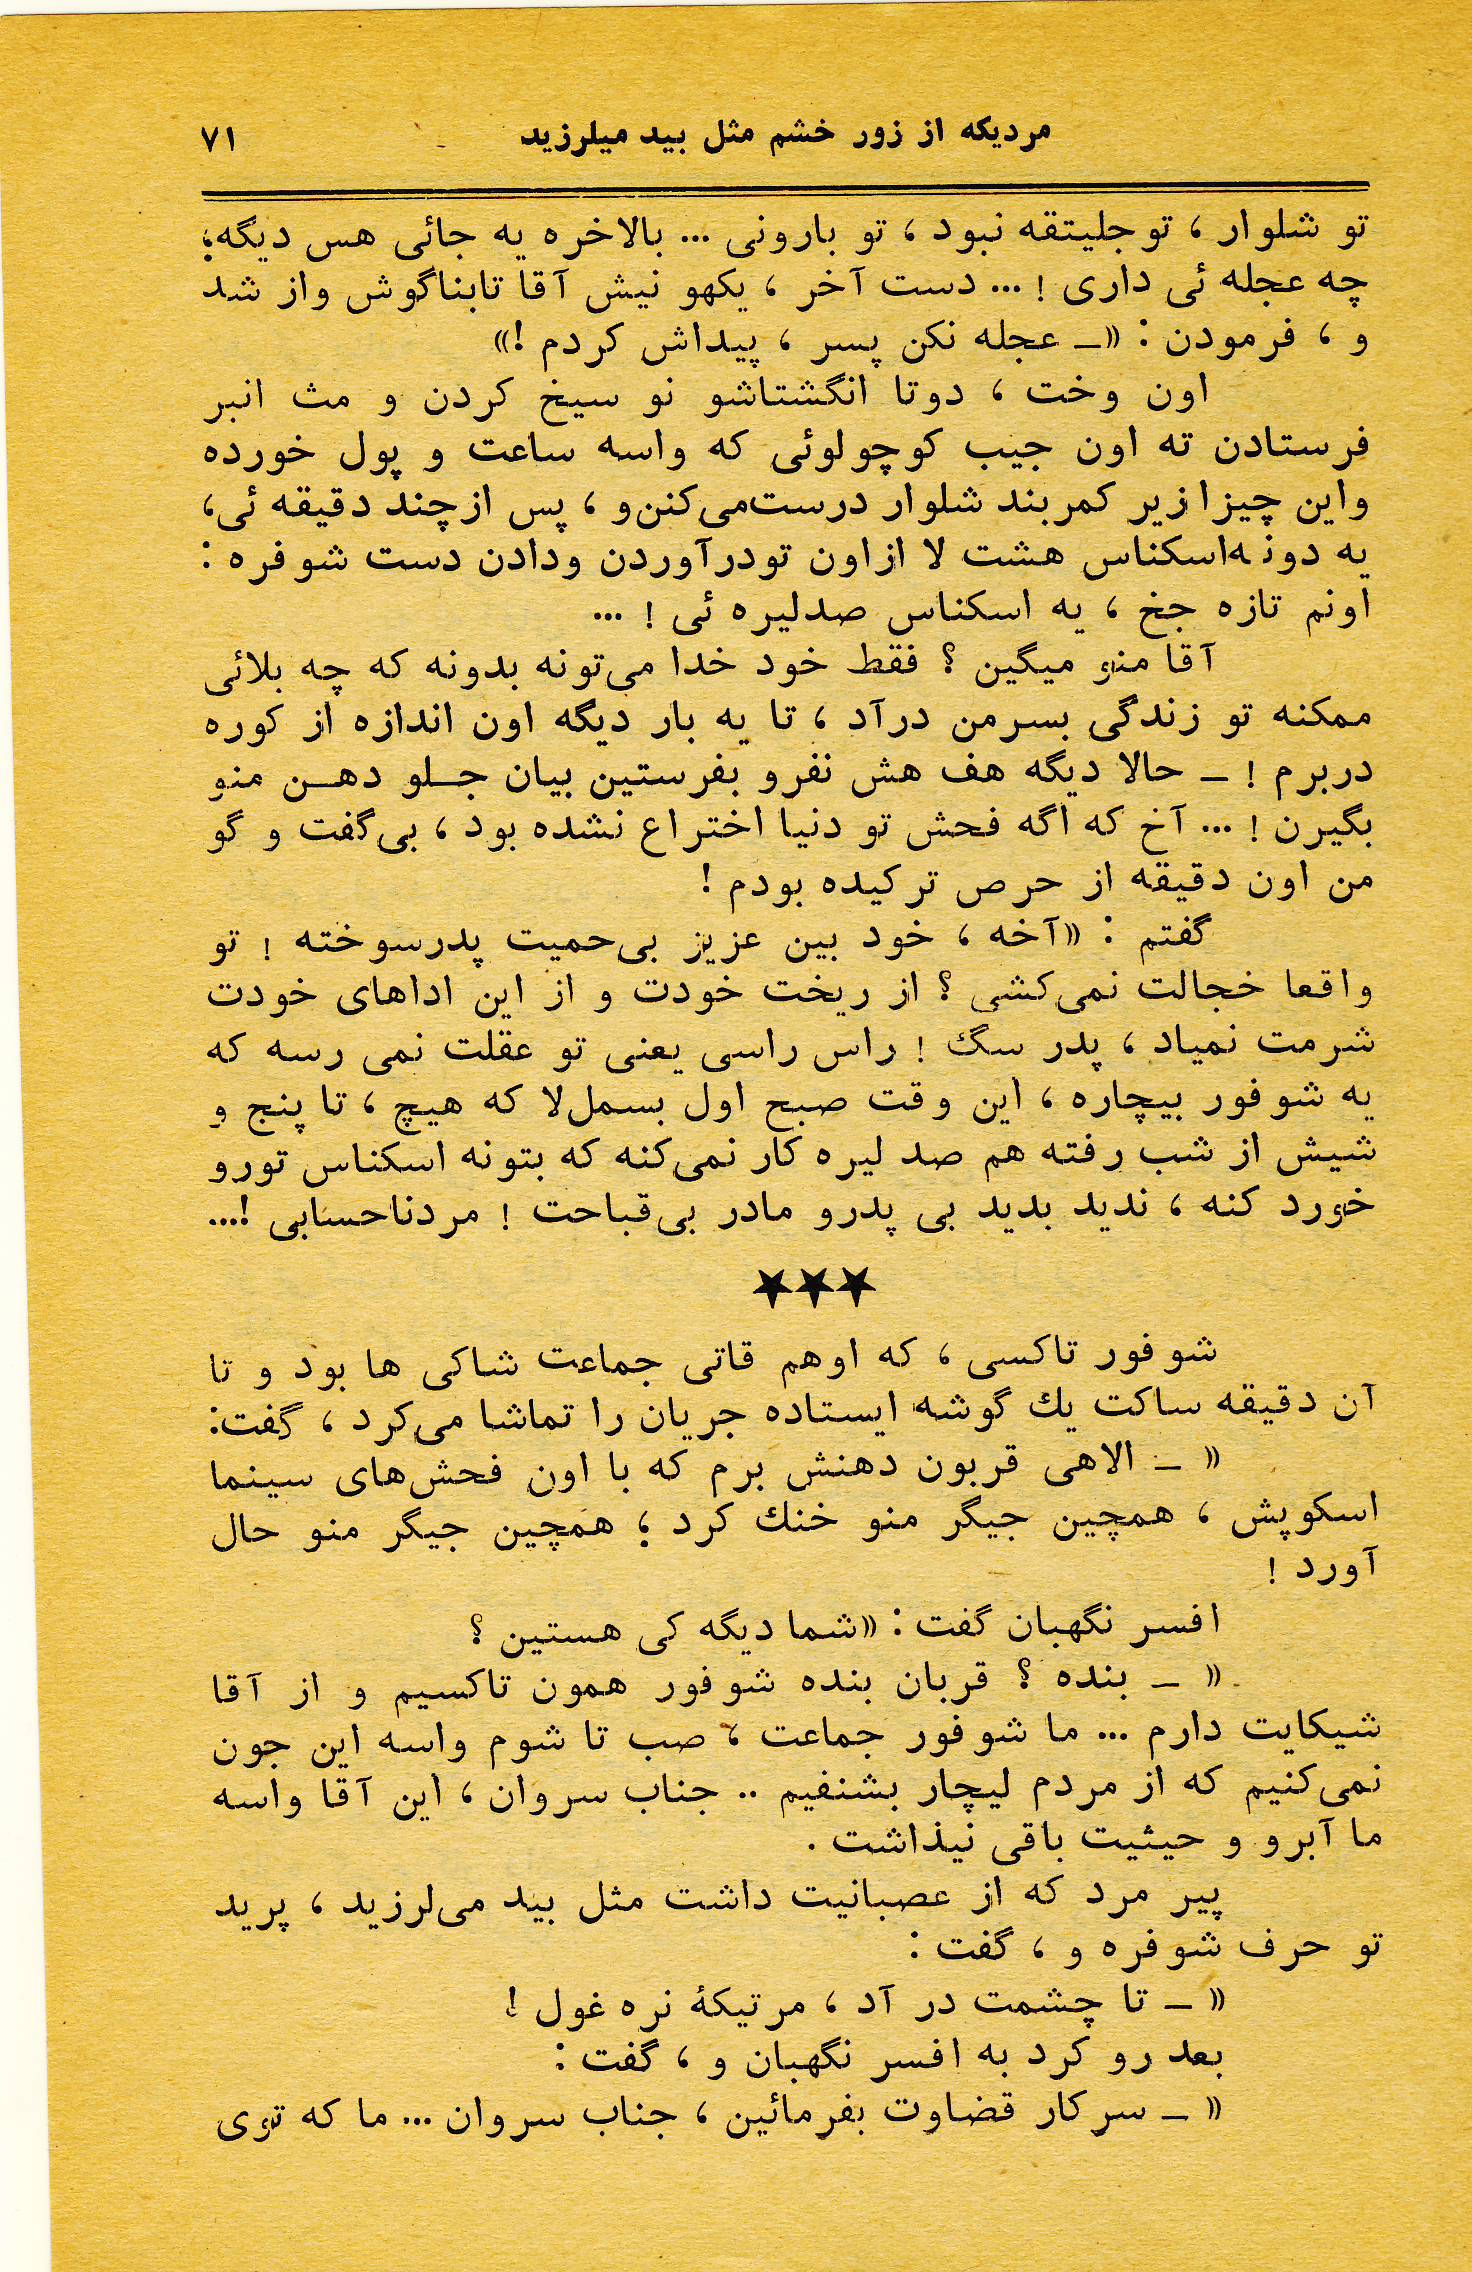 مردیکه از زور خشم مثل بید میلرزید ۷۱
تو شلوار ، تو جلیتقه نبود ، تو بارونی ... بالاخره یه جائی هس دیگه؛
چه عجله ئی داری ! ... دست آخر ، یکهو نیش آقا تابناگوش واز شد
و ، فرمودن : «ــ عجله نکن پسر ، پیداش کردم !»
اون وخت ، دوتا انگشتاشو نو سیخ کردن و مث انبر
فرستادن ته اون جیب کوچولوئی که واسه ساعت و پول خورده
واین چیزا زیر کمربند شلوار درست‌می‌کنن‌و ، پس ازچند دقیقه ئی،
یه دونه‌اسکناس هشت لا ازاون تودرآوردن ودادن دست شوفره :
اونم تازه جخ ، یه اسکناس صدلیره ئی ! ...
آقا منو میگین ؟ فقط خود خدا می‌تونه بدونه که چه بلائی
ممکنه تو زندگی بسرمن درآد ، تا یه بار دیگه اون اندازه از کوره
دربرم ! ــ حالا دیگه هف هش نفرو بفرستین بیان جـلو دهـن منو
بگیرن ! ... آخ که اگه فحش تو دنیا اختراع نشده بود ، بی‌گفت و گو
من اون دقیقه از حرص ترکیده بودم !
گفتم : «آخه ، خود بین عزیز بی‌حمیت پدرسوخته ! تو
واقعا خجالت نمی‌کشی ؟ از ریخت خودت و از این اداهای خودت
شرمت نمیاد ، پدر سگ ! راس راسی یعنی تو عقلت نمی رسه که
یه شوفور بیچاره ، این وقت صبح اول بسمل‌لا که هیچ ، تا پنج و
شیش از شب رفته هم صد لیره کار نمی‌کنه که بتونه اسکناس تورو
خورد کنه ، ندید بدید بی پدرو مادر بی‌قباحت ! مردناحسابی !...
★★★
شوفور تاکسی ، که اوهم قاتی جماعت شاکی ها بود و تا
آن دقیقه ساکت یك گوشه ایستاده جریان را تماشا می‌کرد ، گفت:
« ــ الاهی قربون دهنش برم که با اون فحش‌های سینما
اسکوپش ، همچین جیگر منو خنك کرد ؛ همچین جیگر منو حال
آورد !
افسر نگهبان گفت : «شما دیگه کی هستین ؟
« ــ بنده ؟ قربان بنده شوفور همون تاکسیم و از آقا
شیکایت دارم ... ما شوفور جماعت ، صب تا شوم واسه این جون
نمی‌کنیم که از مردم لیچار بشنفیم .. جناب سروان ، این آقا واسه
ما آبرو و حیثیت باقی نیذاشت .
پیر مرد که از عصبانیت داشت مثل بید می‌لرزید ، پرید
تو حرف شوفره و ، گفت :
« ــ تا چشمت در آد ، مرتیکۀ نره غول !
بعد رو کرد به افسر نگهبان و ، گفت :
« ــ سرکار قضاوت بفرمائین ، جناب سروان ... ما که توی